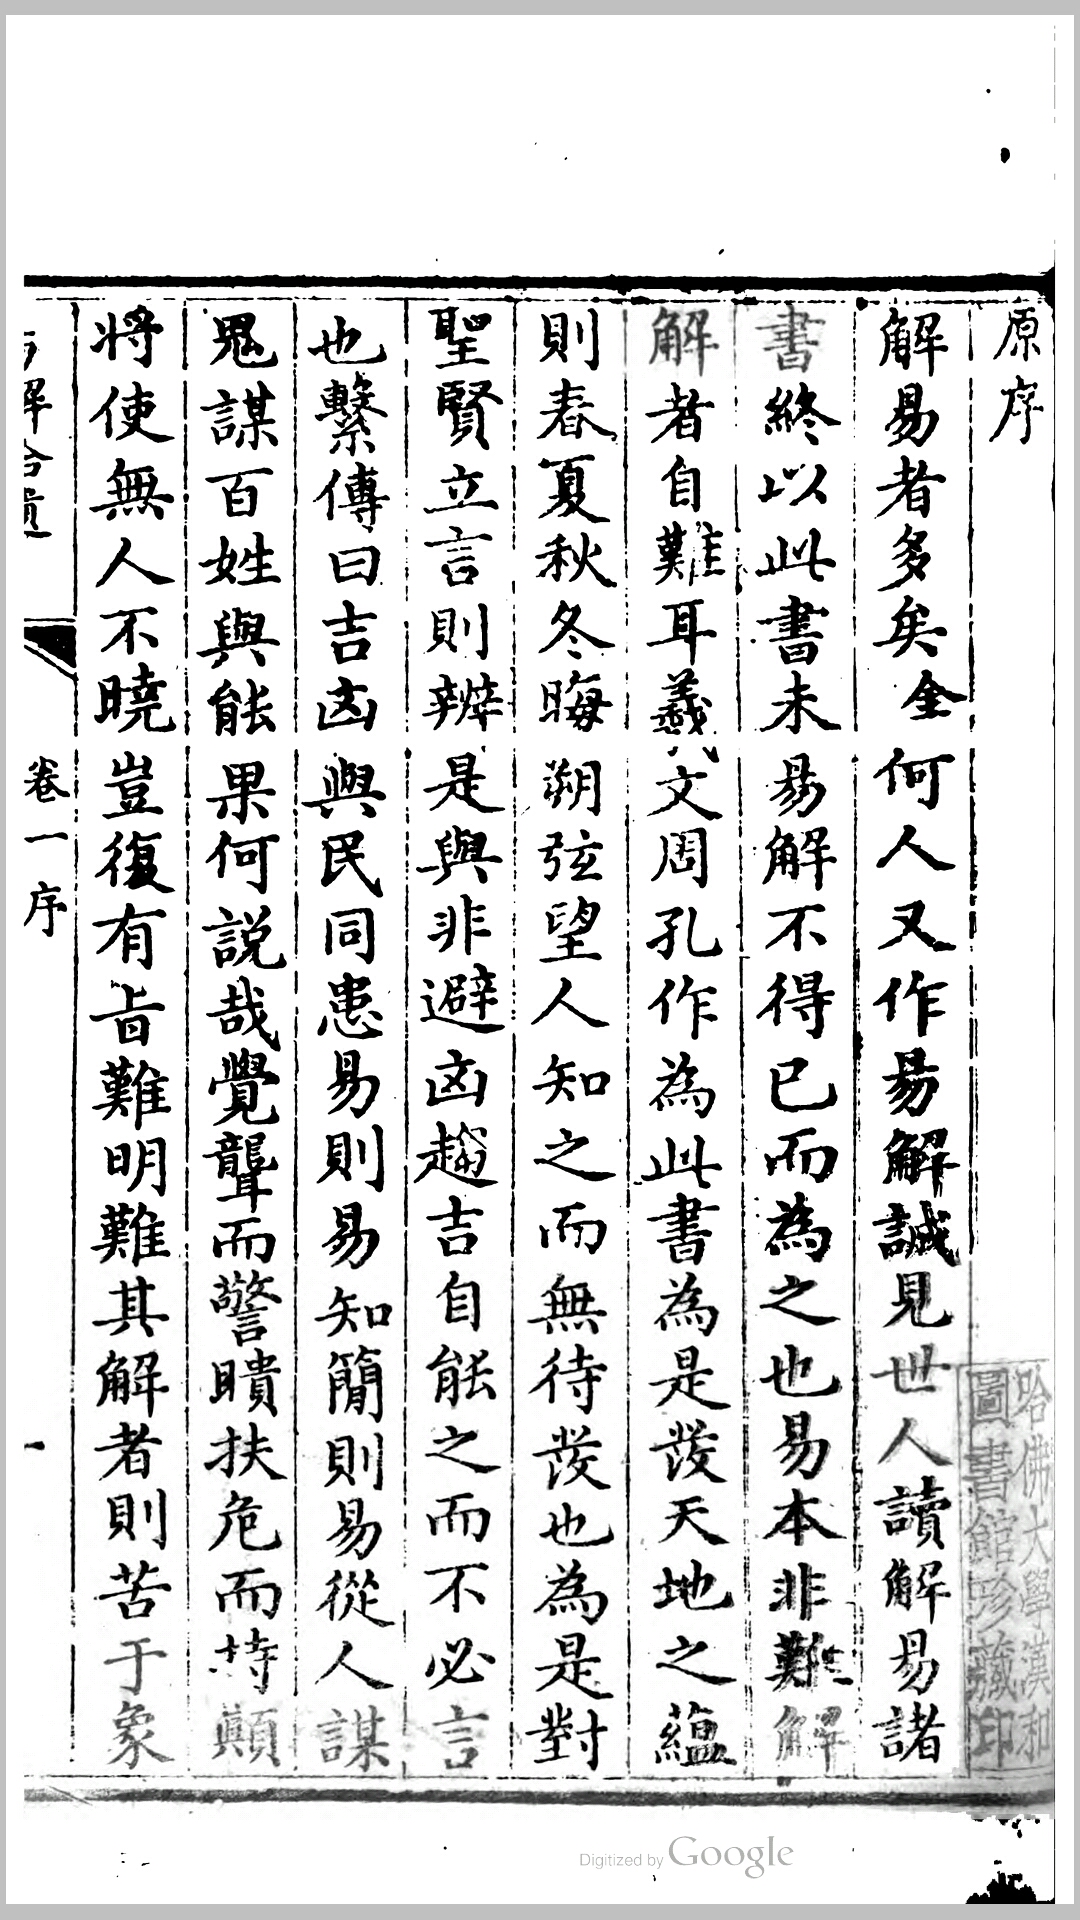 原序
解易者多矣金何人又作易解誠見世人讀解易諸
書終以此書未易解不得已而為之也易本非難解
解者自難耳羲文周孔作為此書為是發天地之蘊
則春夏秋冬晦朔弦望人知之而無待發也為是對
聖賢立言則辨是與非避凶趨吉自能之而不必言
也繫傳曰吉凶與民同患易則易知簡則易從人謀
鬼謀百姓與能果何說哉覺聾而警瞶扶危而持顛
將使無人不曉豈復有旨難明難其解者則苦于象
卷一序
一
哈佛大學漢和
圖書館珍藏印
Digitized by Google